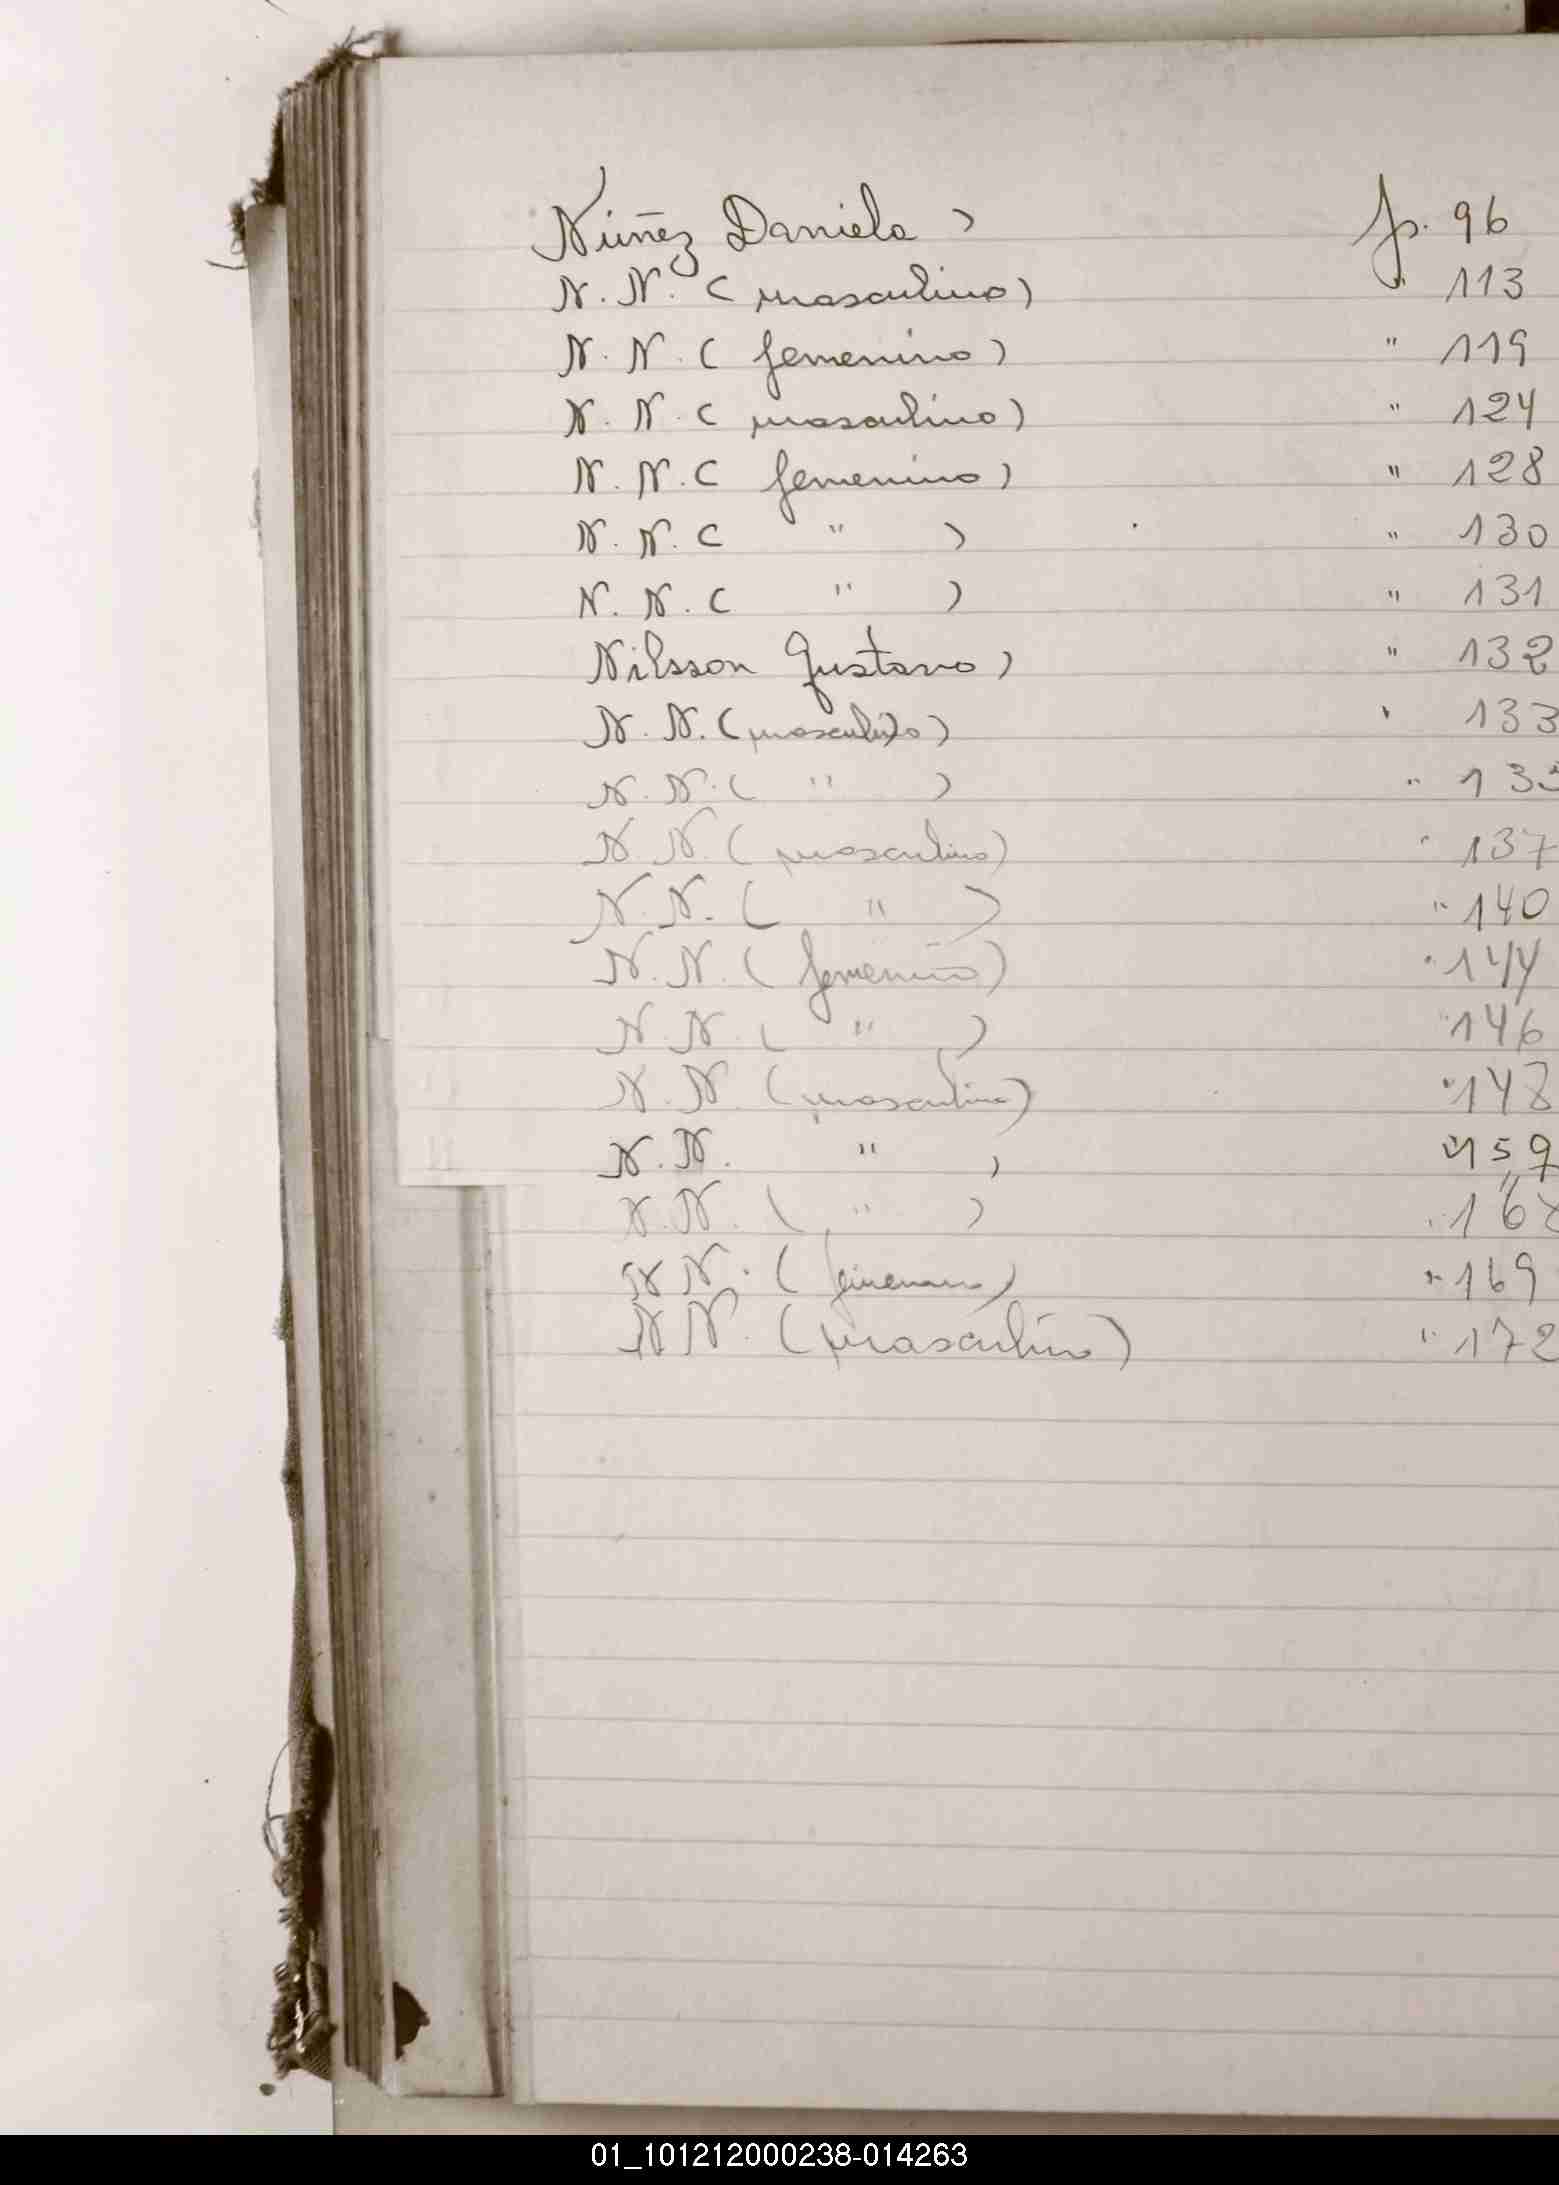 Núñez Daniela ) p. 96
N. N. ( masculino) " 113
N. N. ( femenino) " 119
N. N. ( masculino) " 124
N. N. ( femenino) " 128
N. N. ( " ) " 130
N. N. ( " ) " 131
Nilsson Gustavo) " 132
N. N. (masculino) " 133
N. N. ( " ) "
N. N. ( masculino) " 137
N. N. ( " ) " 140
N. N. ( femenino) " 144
N. N. ( " ) " 146
N. N. ( masculino) " 148
N. N. " ) " 159
N. N. ( " ) "
N N. ( femenino) " 169
N N. ( masculino) " 172
01_101212000238-014263